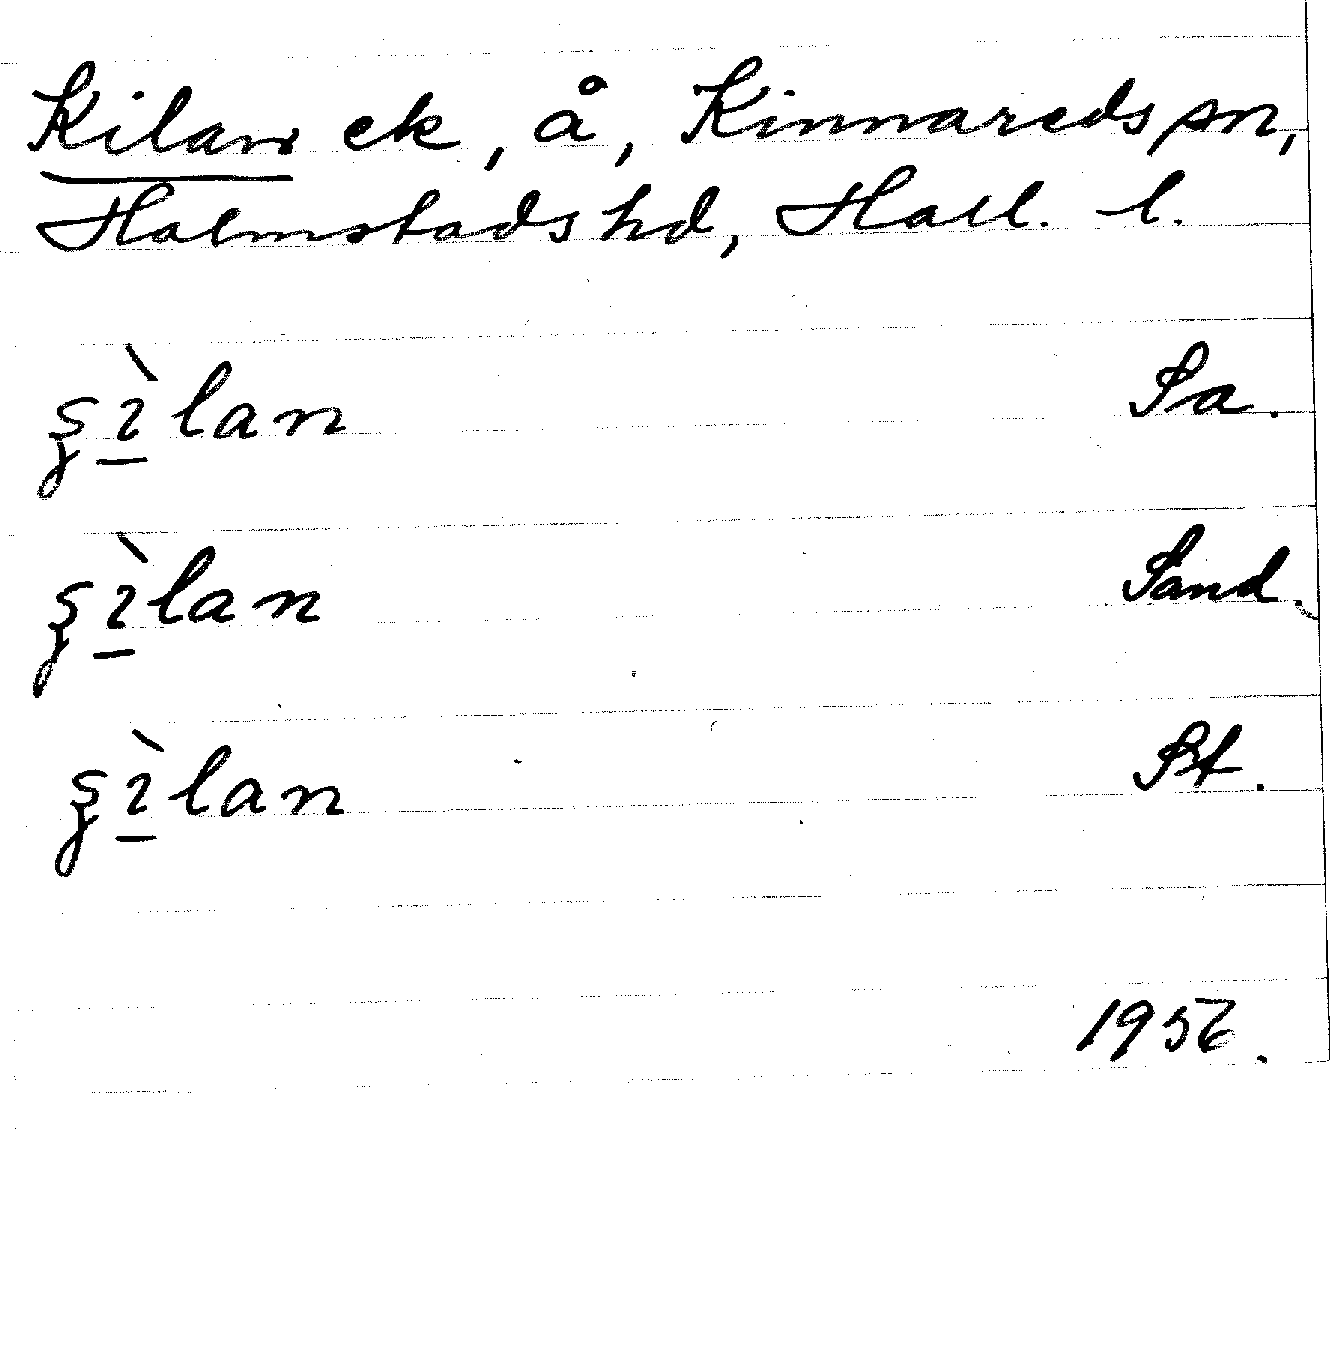 Kilan ek, å, Kinnareds sn,
Halmstads hd, Hall. l.
ʂì̱lan Sa.
ʂì̱lan Sand.
ʂì̱lan St.
1956.